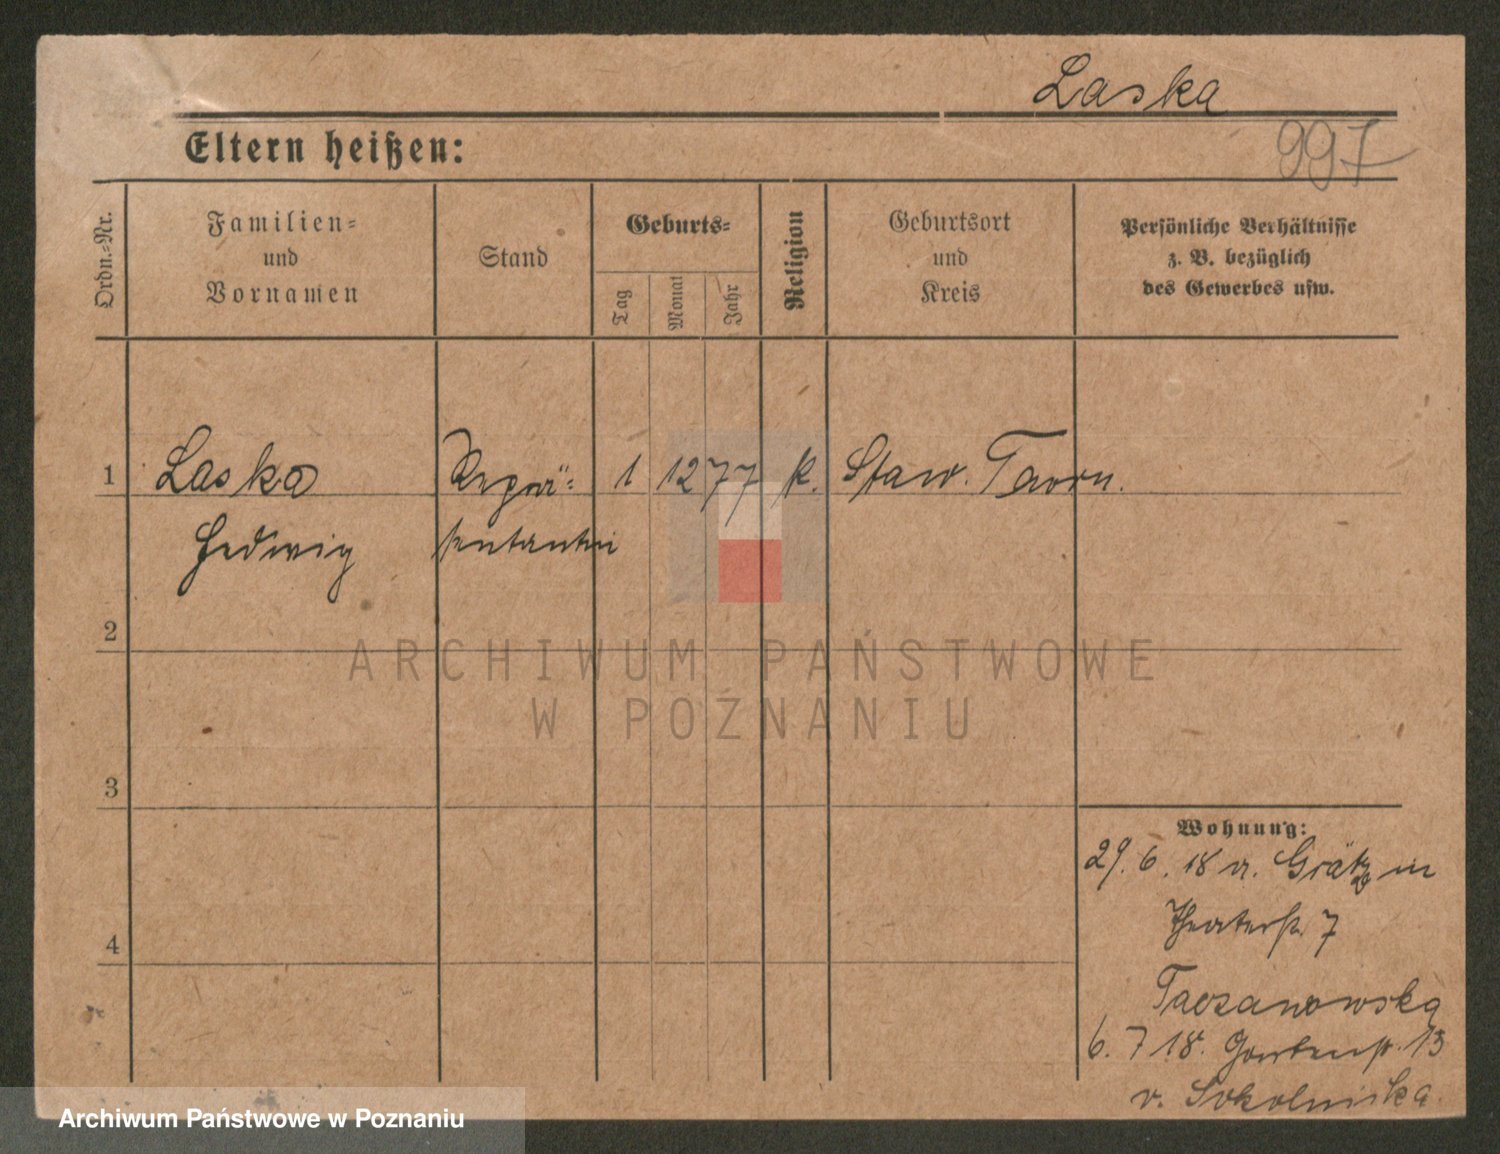 Laska
Eltern heißen:
997
Ordn.=Nr.
Familien=
und
Vornamen
Stand
Geburts=
Tag
Monat
Jahr
Religion
Geburtsort
und
Kreis
Persönliche Verhältnisse
z. B. bezüglich
des Gewerbes usw.
1 Laska Reprä= 1 12 77 k. Staw. Tarn.
Hedwig sentantin
2
ARCHIWUM PAŃSTWOWE
W POZNANIU
3
Wohnung:
29. 6. 18 v. Grätz in
Theaterstr. 7
4
Taczanowska
6. 7 18. Gartenstr. 13
v. Sokolnicka.
Archiwum Państwowe w Poznaniu